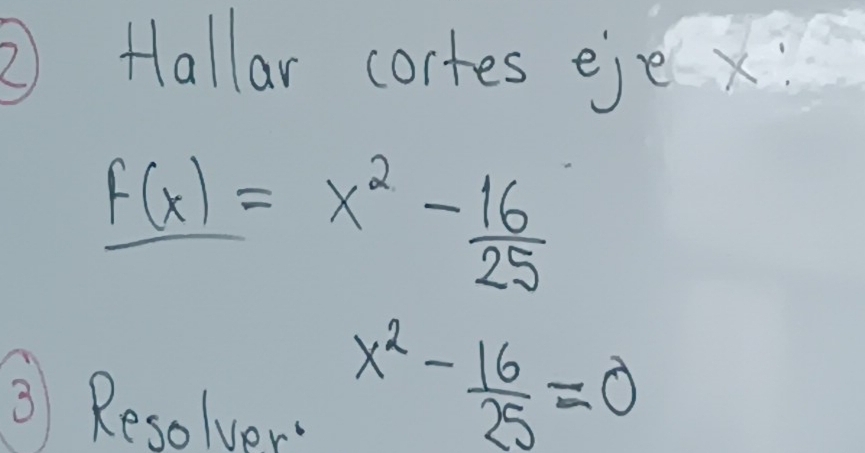 ② Hallar cortes eje x:
F(x) = x² - 16/25
③ Resolver: x² - 16/25 = 0